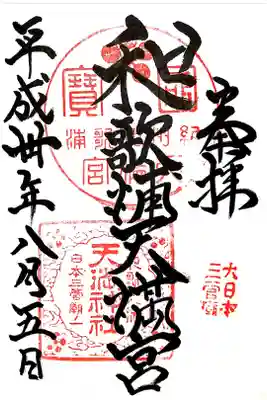 奉拝
大日本
三菅廟
和歌浦天満宮
天満神社
日本三菅廟一
平成卅年八月五日